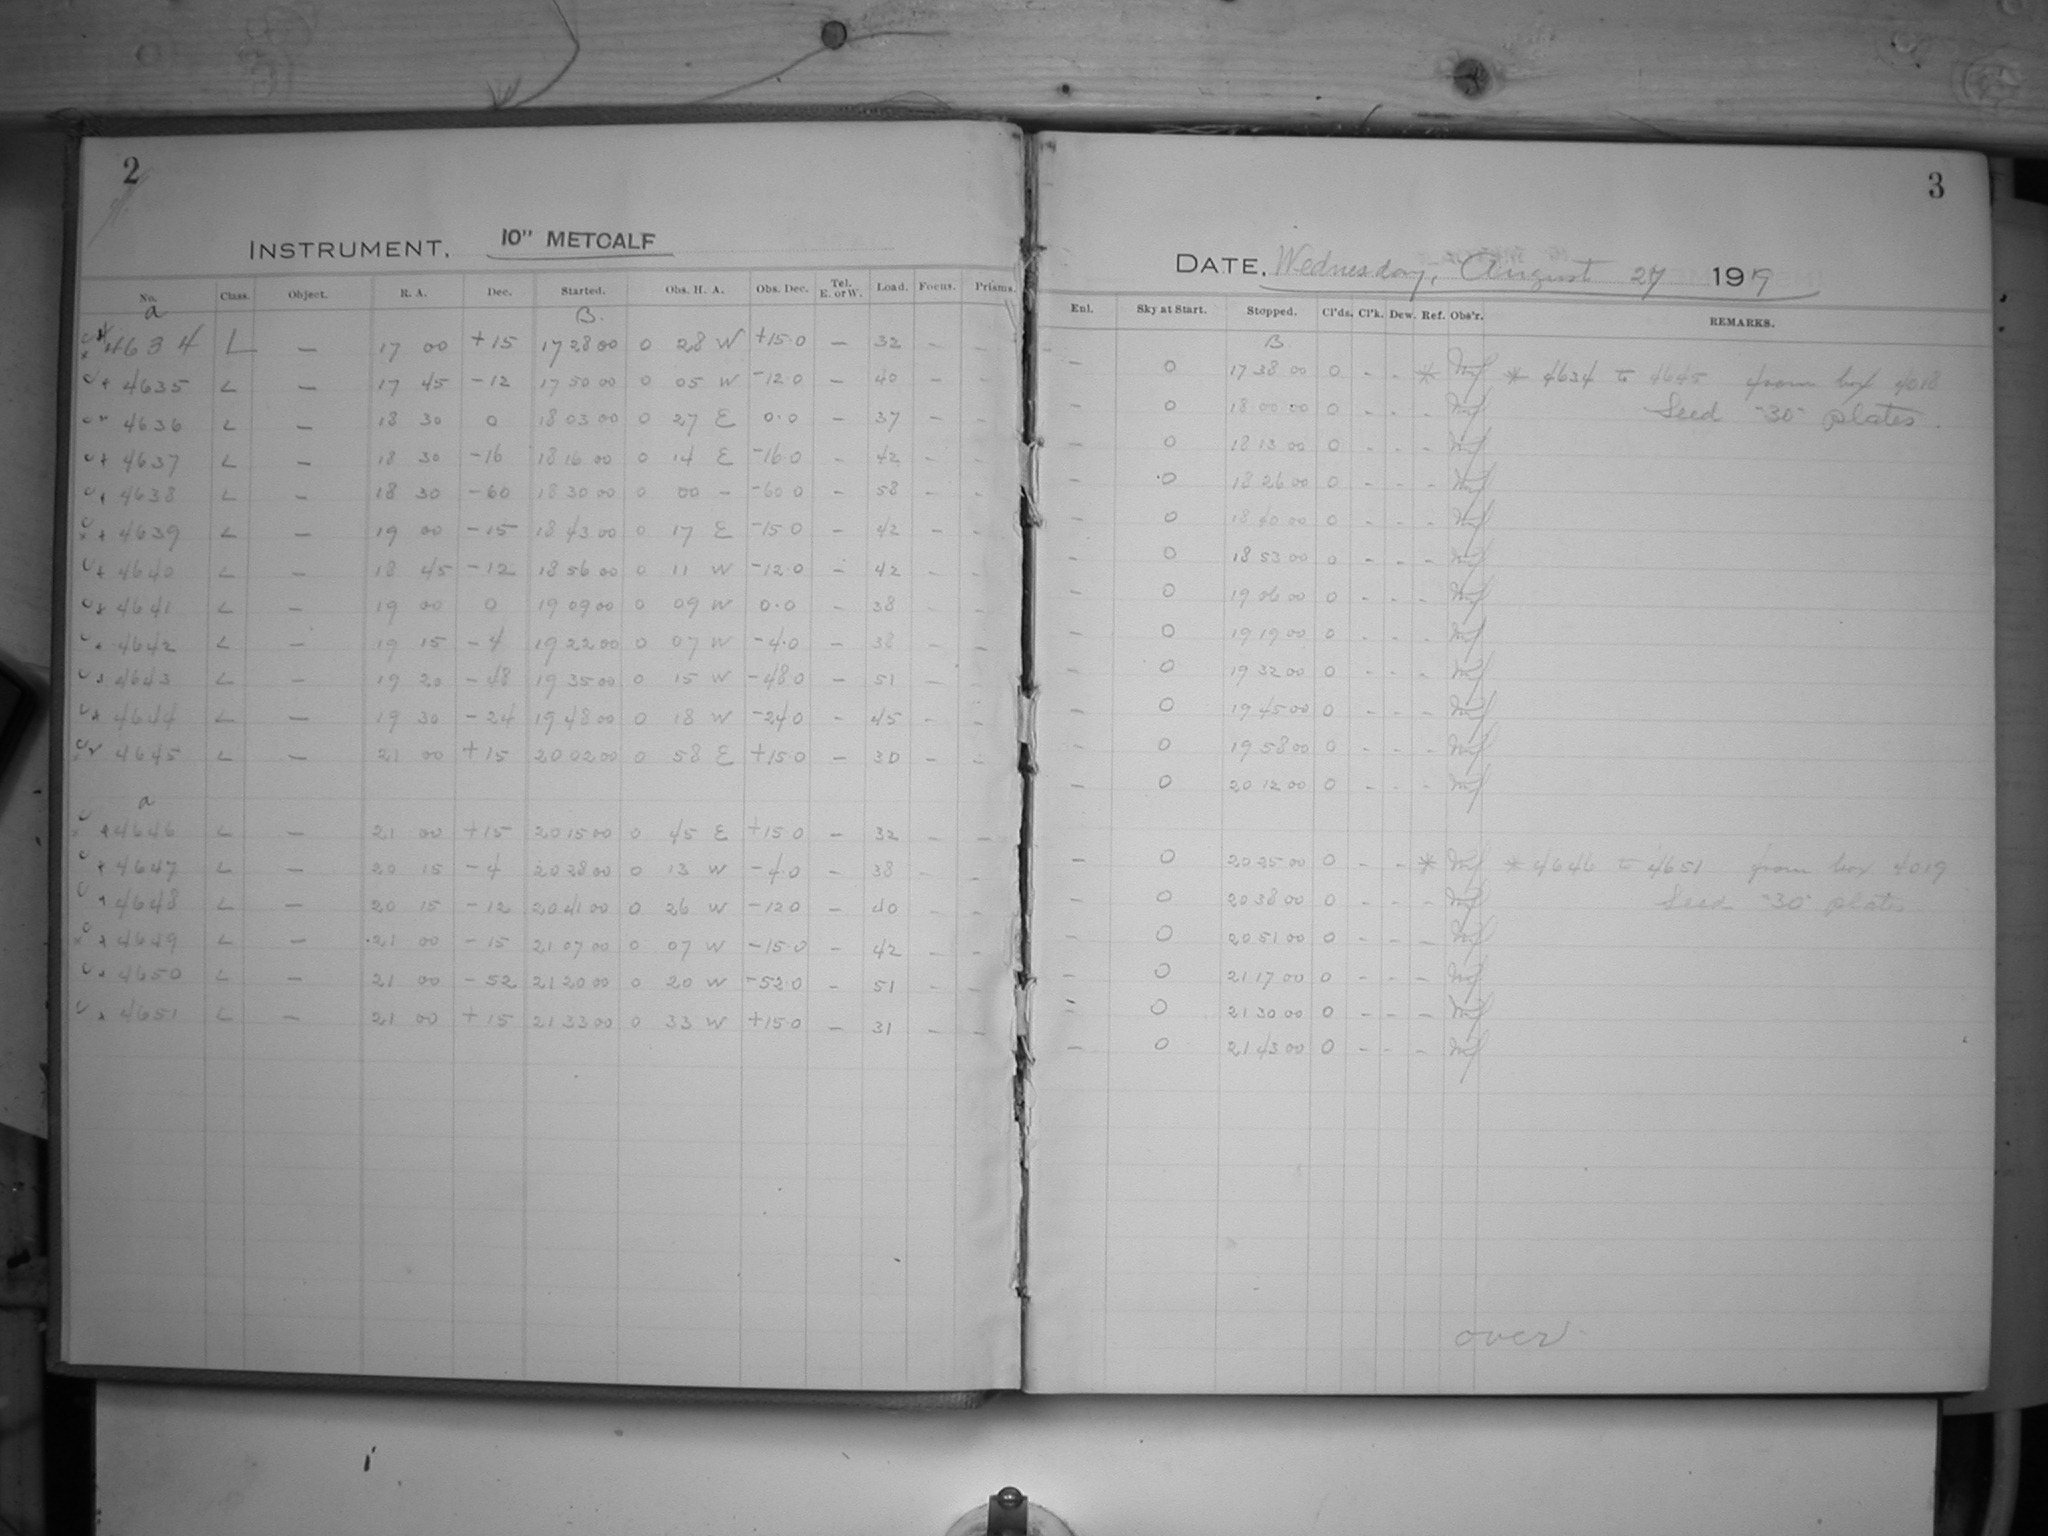 2
INSTRUMENT. 10" METCALF
No. Class. Object. R. A. Dec. Started. Obs. H. A. Obs. Dec. Tel. E. or W. Load. Focus. Prisms.
a B.
4634 L — 17 00 +15 17 28 00 0 28 W +15.0 — 32 — —
4635 L — 17 45 -12 17 50 00 0 05 W -12.0 — 40 — —
4636 L — 18 30 0 18 03 00 0 27 E 0.0 — 37 — —
4637 L — 18 30 -16 18 16 00 0 14 E -16.0 — 42 — —
4638 L — 18 30 -60 18 30 00 0 00 — -60 0 — 58 — —
4639 L — 19 00 -15 18 43 00 0 17 E -15 0 — 42 — —
4640 L — 18 45 -12 18 56 00 0 11 W -12.0 — 42 — —
4641 L — 19 00 0 19 09 00 0 09 W 0.0 — 38 — —
4642 L — 19 15 -4 19 22 00 0 07 W -4.0 — 38 — —
4643 L — 19 20 -48 19 35 00 0 15 W -48.0 — 51 — —
4644 L — 19 30 -24 19 48 00 0 18 W -24.0 — 45 — —
4645 L — 21 00 +15 20 02 00 0 58 E +15.0 — 30 — —
a
4646 L — 21 00 +15 20 15 00 0 45 E +15 0 — 32 — —
4647 L — 20 15 -4 20 28 00 0 13 W -4.0 — 38 — —
4648 L — 20 15 -12 20 41 00 0 26 W -12 0 — 40 — —
4649 L — 21 00 -15 21 07 00 0 07 W -15.0 — 42 — —
4650 L — 21 00 -52 21 20 00 0 20 W -52.0 — 51 — —
4651 L — 21 00 +15 21 33 00 0 33 W +15.0 — 31 — —
3
DATE. Wednesday, August 27 1919
Enl. Sky at Start. Stopped. Cl'ds. Cl'k. Dew. Ref. Obs'r. REMARKS.
B.
— 0 17 38 00 0 - - * * 4634 to 4645 from box 4018
— 0 18 00 00 0 - - - Seed "30" plates.
— 0 18 13 00 0 - - -
— 0 18 26 00 0 - - -
— 0 18 40 00 0 - - -
— 0 18 53 00 0 - - -
— 0 19 06 00 0 - - -
— 0 19 19 00 0 - - -
— 0 19 32 00 0 - - -
— 0 19 45 00 0 - - -
— 0 19 58 00 0 - - -
— 0 20 12 00 0 - - -
— 0 20 25 00 0 - - * * 4646 to 4651 from box 4019
— 0 20 38 00 0 - - - Seed "30" plates
— 0 20 51 00 0 - - -
— 0 21 17 00 0 - - -
— 0 21 30 00 0 - - -
— 0 21 43 00 0 - - -
over